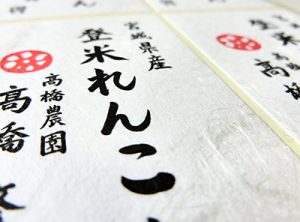 宮城県産
登米れんこ
高橋農園
高橋
登米
高橋